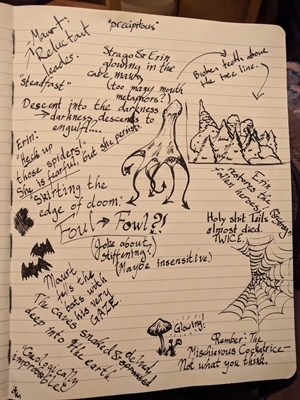 Maurt:
Reluctant
leader.
"steadfast"
"precipitous"
Strago & Erin
glowing in the
cave maw
(too many mouth
metaphors?)
Broken teeth above
the tree line.
Descent into the darkness
→ darkness descends to
engulf....
Erin:
"Heck up
those spiders!"
She is fearful, but she persists
"Skirting the
edge of doom."
Foul → Fowl?!
(Joke about
stiffening?
(Maybe insensitive)
Erin
restoring the
fallen heroes!
Holy shit Tails
almost died.
TWICE.
Maurt
fells the
bats with
his very
GAZE
The caves snaked & sprawled
deep into the earth.
"Geologically
improbable"
Glowing!
Rember: The
Mischievous Cockatrice –
Not what you think.